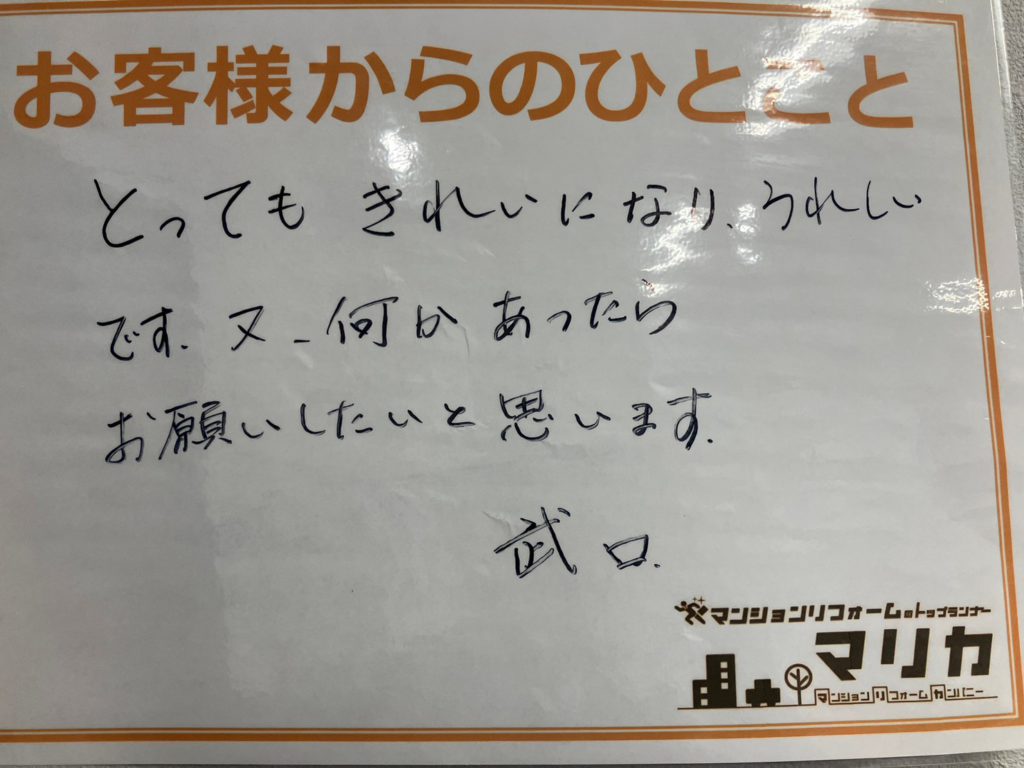 お客様からのひとこと
とっても きれいになり、うれしい
です. 又、何か あったら
お願いしたいと思います.
武口.
マンションリフォームのトップランナー
マリカ
マンションリフォームカンパニー